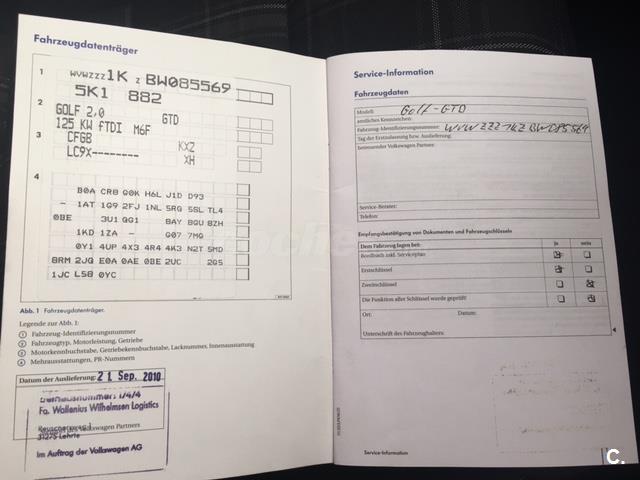 Fahrzeugdatenträger
1
WVWZZZ1K Z BW085569
5K1 882
2
GOLF 2,0 GTD
125 KW fTDI M6F
3
CFGB KXZ
LC9X--------- XH
4
B0A CR8 G0K H6L J1D D93
- 1AT 1G9 2FJ 1NL 5RG 5SL TL4
0BE 3U1 GG1 BAY BGU 8ZH
1KD 1ZA - G07 7MG
0Y1 4UP 4X3 4R4 4K3 N2T 5MD
8RM 2JQ E0A 0AE 0BE 2UC 2G5
1JC L58 0YC
Abb. 1 Fahrzeugdatenträger.
Legende zur Abb. 1:
1 Fahrzeug-Identifizierungsnummer
2 Fahrzeugtyp, Motorleistung, Getriebe
3 Motorkennbuchstabe, Getriebekennbuchstabe, Lacknummer, Innenausstattung
4 Mehrausstattungen, PR-Nummern
Datum der Auslieferung: 21 Sep. 2010
Fa. Wallenius Wilhelmsen Logistics
31275 Lehrte
des Volkswagen Partners
Im Auftrag der Volkswagen AG
Service-Information
Fahrzeugdaten
Modell: Golf-GTD
amtliches Kennzeichen:
Fahrzeug-Identifizierungsnummer: WVWZZZ1KZBW085569
Tag der Erstzulassung bzw. Auslieferung:
betreuender Volkswagen Partner:
Service-Berater:
Telefon:
Empfangsbestätigung von Dokumenten und Fahrzeugschlüsseln
Dem Fahrzeug lagen bei: ja nein
Bordbuch inkl. Serviceplan
Erstschlüssel
Zweitschlüssel
Die Funktion aller Schlüssel wurde geprüft!
Ort: Datum:
Unterschrift des Fahrzeughalters:
Service-Information
C.